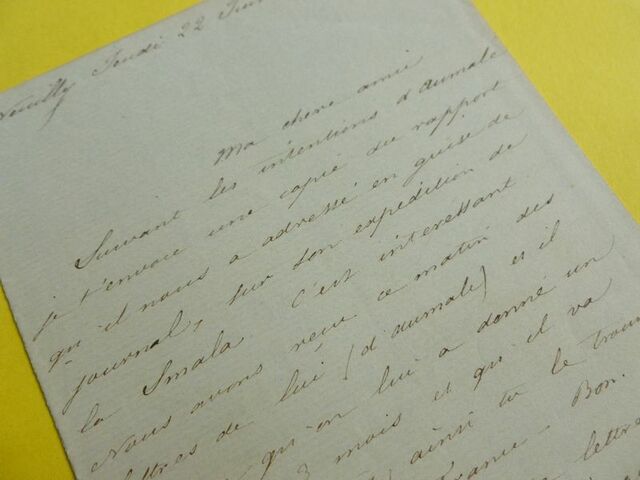 Neuilly Jeudi 22 Jui
Ma chère amie
Suivant les intentions d'aumale
je t'envoie une copie du rapport
qu'il nous a adressé en guise de
journal, sur son expédition de
la Smala. C'est intéressant.
Nous avons reçu ce matin des
lettres de lui (d'aumale) et il
qu'on lui a donné un
3 mois et qu'il va
) ainsi tu le trouv
France. Bon.
lettre